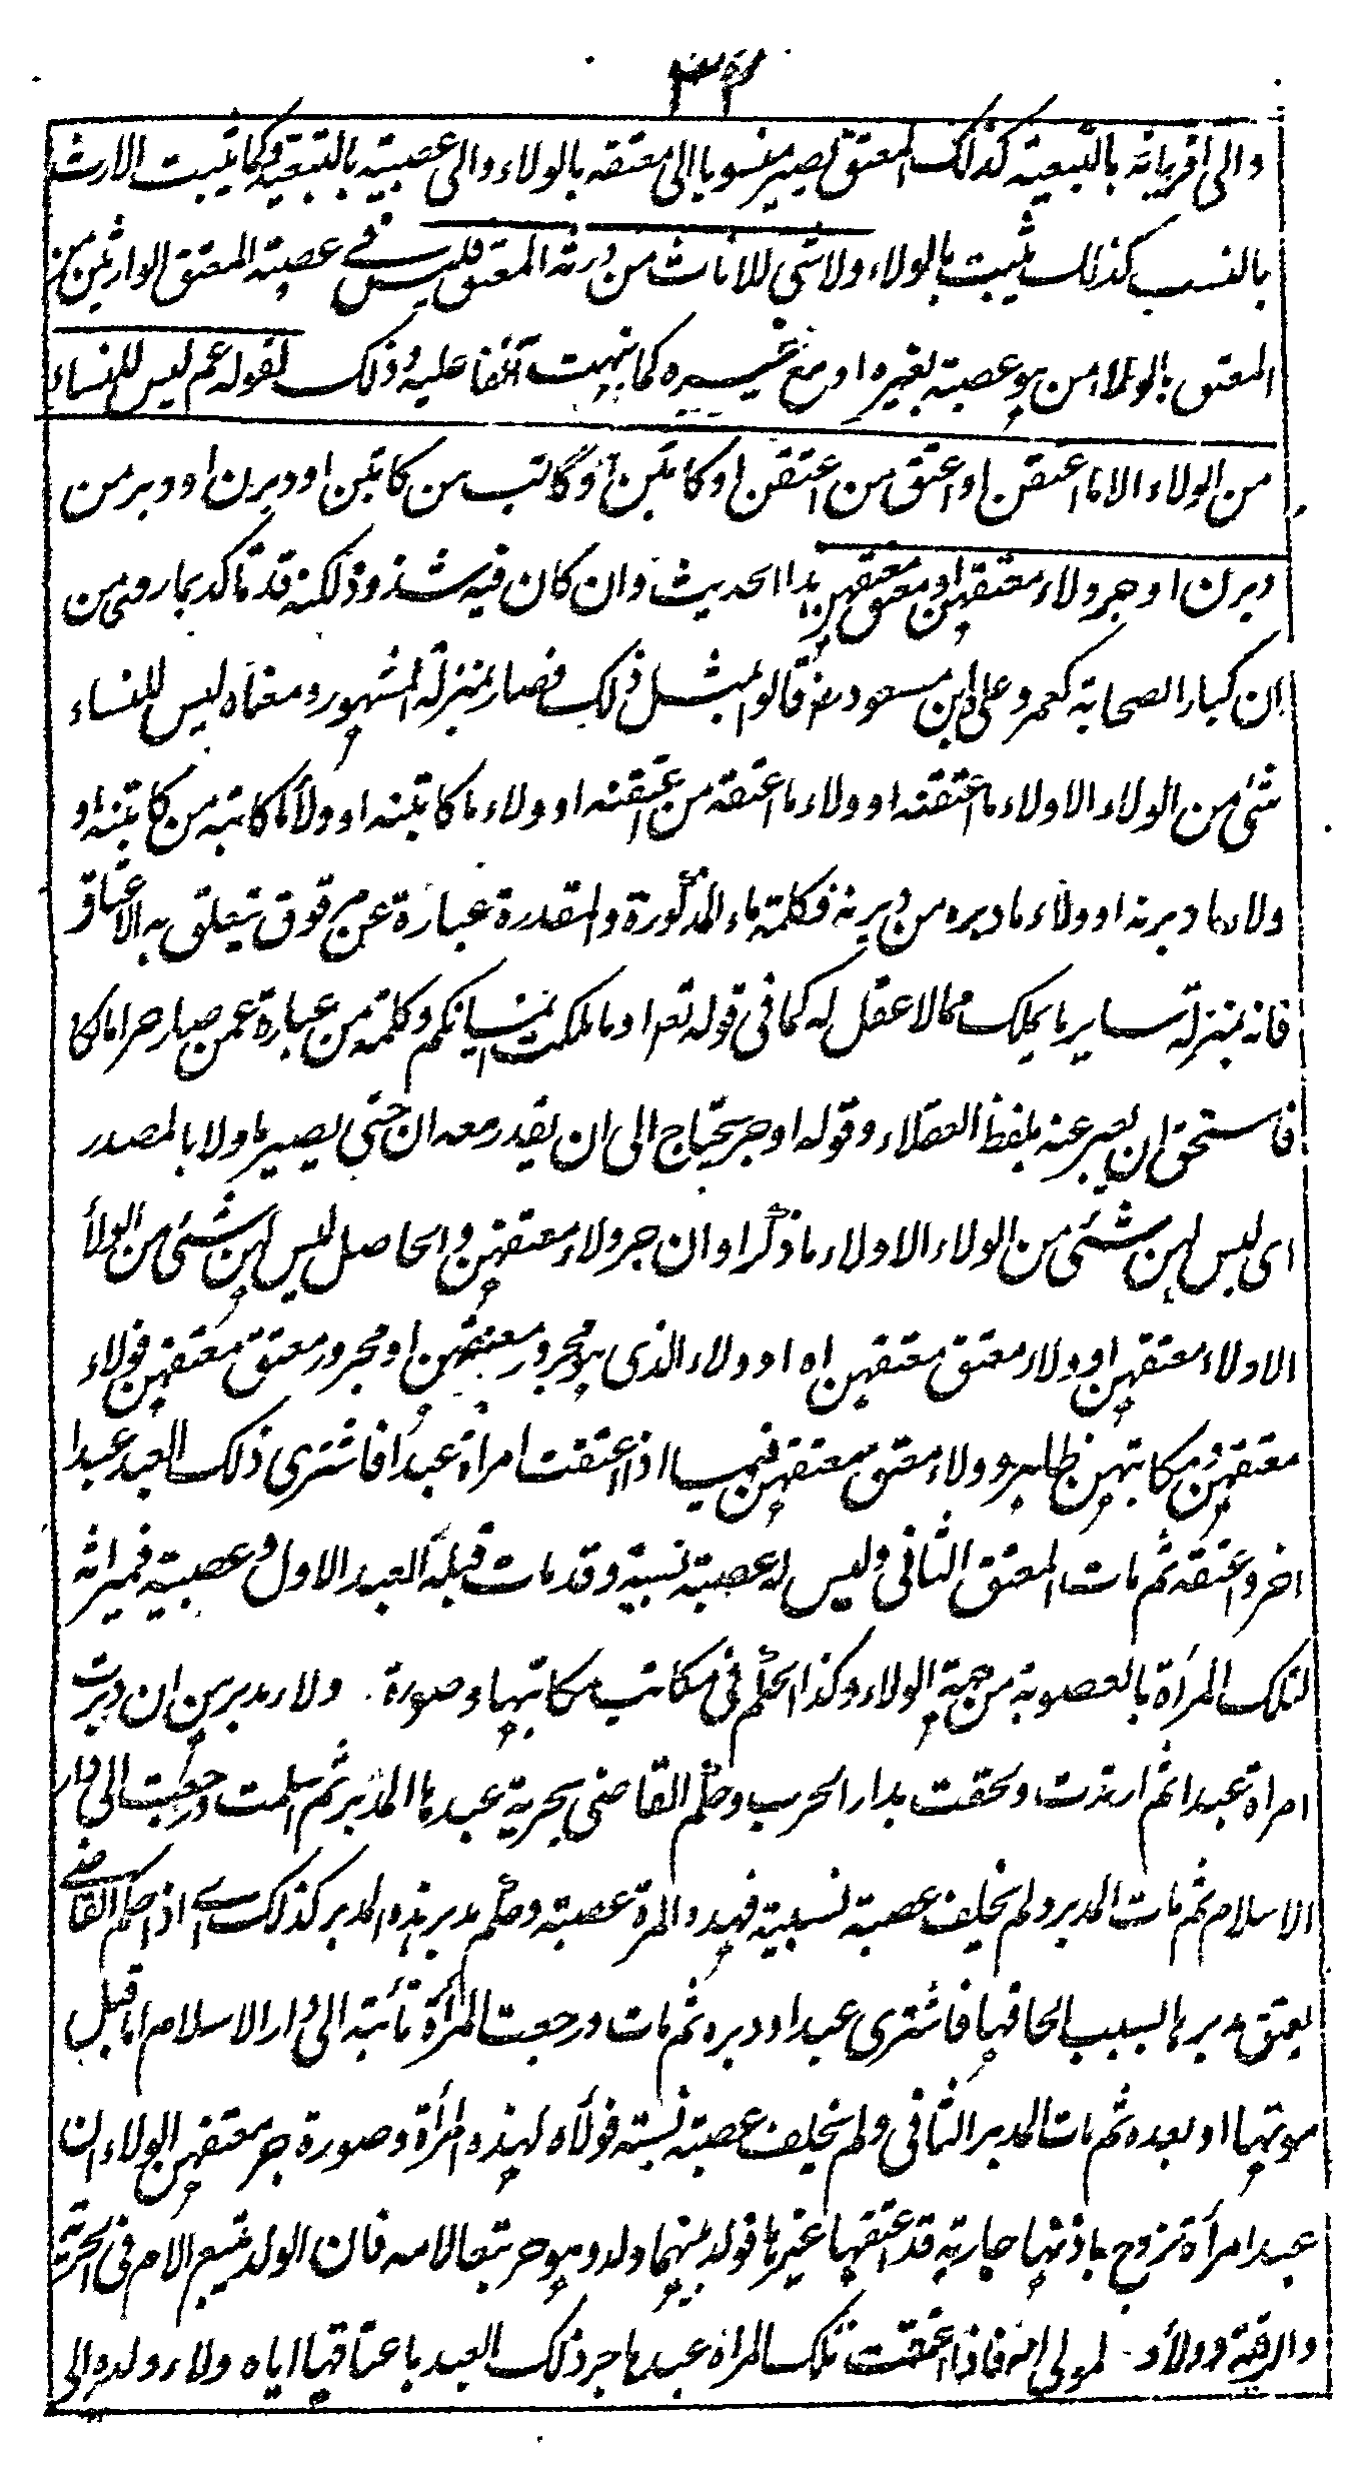 ٣٤
والى اقربائه بالتبعية كذلك المعتق يصير منسوبا الى معتقه بالولاء والى عصبته بالتبعية وكما يثبت الارث
بالنسب كذلك يثبت بالولاء ولا شئ للاناث من ورثة المعتق فليس فے عصبته المعتق الوارثين من
المعتق بالولاء من هو عصبة بغيره او مع غيره كما نبهت آنفا عليه وذلك لقوله عم ليس للنساء
من الولاء الا ما اعتقن او اعتق من اعتقن او كاتبن او كاتب من كاتبن او دبرن او دبر من
دبرن او جر ولاء معتقهن او معتق معتقهن هذا الحديث وان كان فيه شذوذ لكنه قد تاكد بما روى من
ان كبار الصحابة كعمر وعلى وابن مسعود رضه قالوا بمثل ذلك فصار بمنزلة المشهور ومعناه ليس للنساء
شئ من الولاء الا ولاء ما اعتقنه او ولاء ما اعتقه من اعتقنه او ولاء ما كاتبنه او ولاء ما كاتبه من كاتبنه او
ولاء ما دبرنه او ولاء ما دبره من دبرنه فكلمة ماء المذكورة والمقدرة عبارة عن مرقوق يتعلق به الاعتاق
فانه بمنزلة ساير ما يملك مما لا عقل له كما فى قوله تعه او ما ملكت ايمانكم وكلمة من عبارة عمن صار حرا مالكا
فاستحق ان يعبر عنه بلفظ العقلاء وقوله او جر يحتاج الى ان يقدر معه ان حتى يصير ماولا بالمصدر
اى ليس لهن شئى من الولاء الا ولاء ما ذكر او ان جر ولاء معتقهن والحاصل ليس لهن شئى من الولاء
الا ولاء معتقهن او ولاء معتق معتقهن اه او ولاء الذى هو مجرور معتقهن او مجرور معتق معتقهن فولاء
معتقهن ومكاتبهن ظاهر وولاء معتق معتقهن فيما اذا اعتقت امراة عبدا فاشترى ذلك العبد عبدا
اخر واعتقه ثم مات المعتق الثانى وليس له عصبة نسبية وقد مات قبله العبد الاول وعصبته فميراثه
لتلك المرأة بالعصوبة من جهة الولاء وكذا الحكم فى مكاتب مكاتبها وصورة ولاء مدبرهن ان دبرت
امراة عبدا ثم ارتدت ولحقت بدار الحرب وحكم القاضى بحرية عبدها المدبر ثم اسلمت ورجعت الى دار
الاسلام ثم مات المدبر ولم يخلف عصبة نسبية فهذه المرة عصبته وحكم مدبر هذه المدبر كذلك اے اذا حكم القاضے
بعتق مدبرها بسبب لحاقها فاشترى عبدا ودبره ثم مات ورجعت المرأة تائبة الى دار الاسلام اما قبل
موتهما او بعده ثم مات المدبر الثانى ولم يخلف عصبة نسبته فولاؤه لهذه المرأة وصورة جر معتقهن الولاء ان
عبد امرأة تزوج باذنها جارية قد اعتقها غيرها فولد بينهما ولد وهو حر تبعا لامه فان الولد يتبع الام فى الحرية
والرقية وولاؤه لمولى امه فاذا اعتقت تلك المراة عبدها جر ذلك العبد باعتاقها اياه ولاء ولده الى